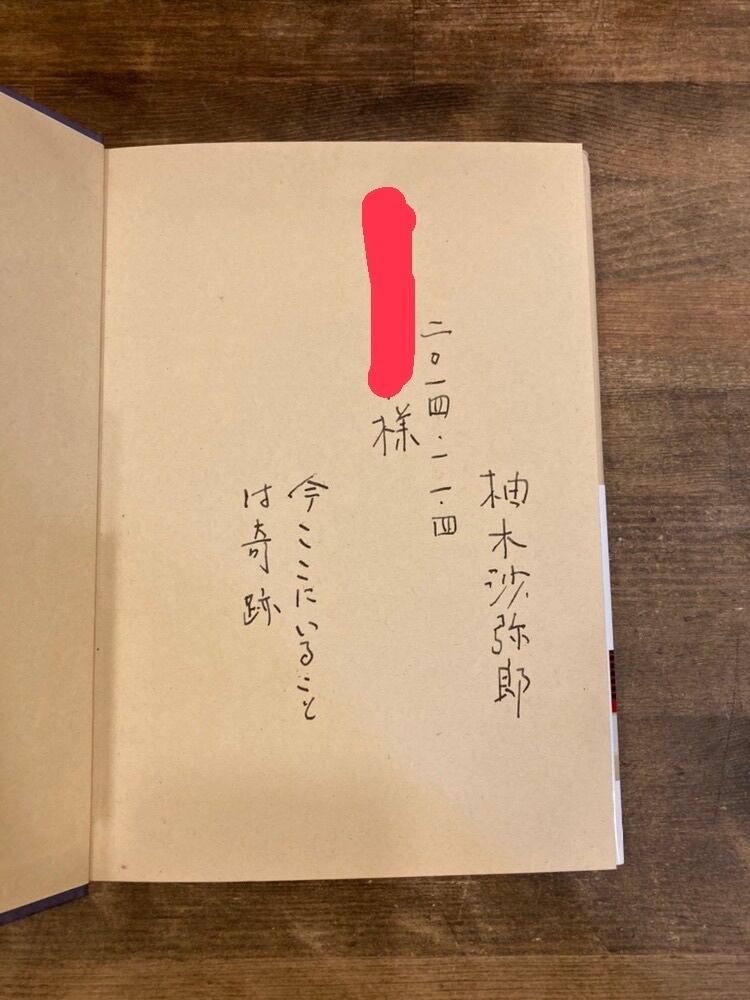 柚木沙弥郎
二〇一四.一一.四
様
今ここにいること
は奇跡